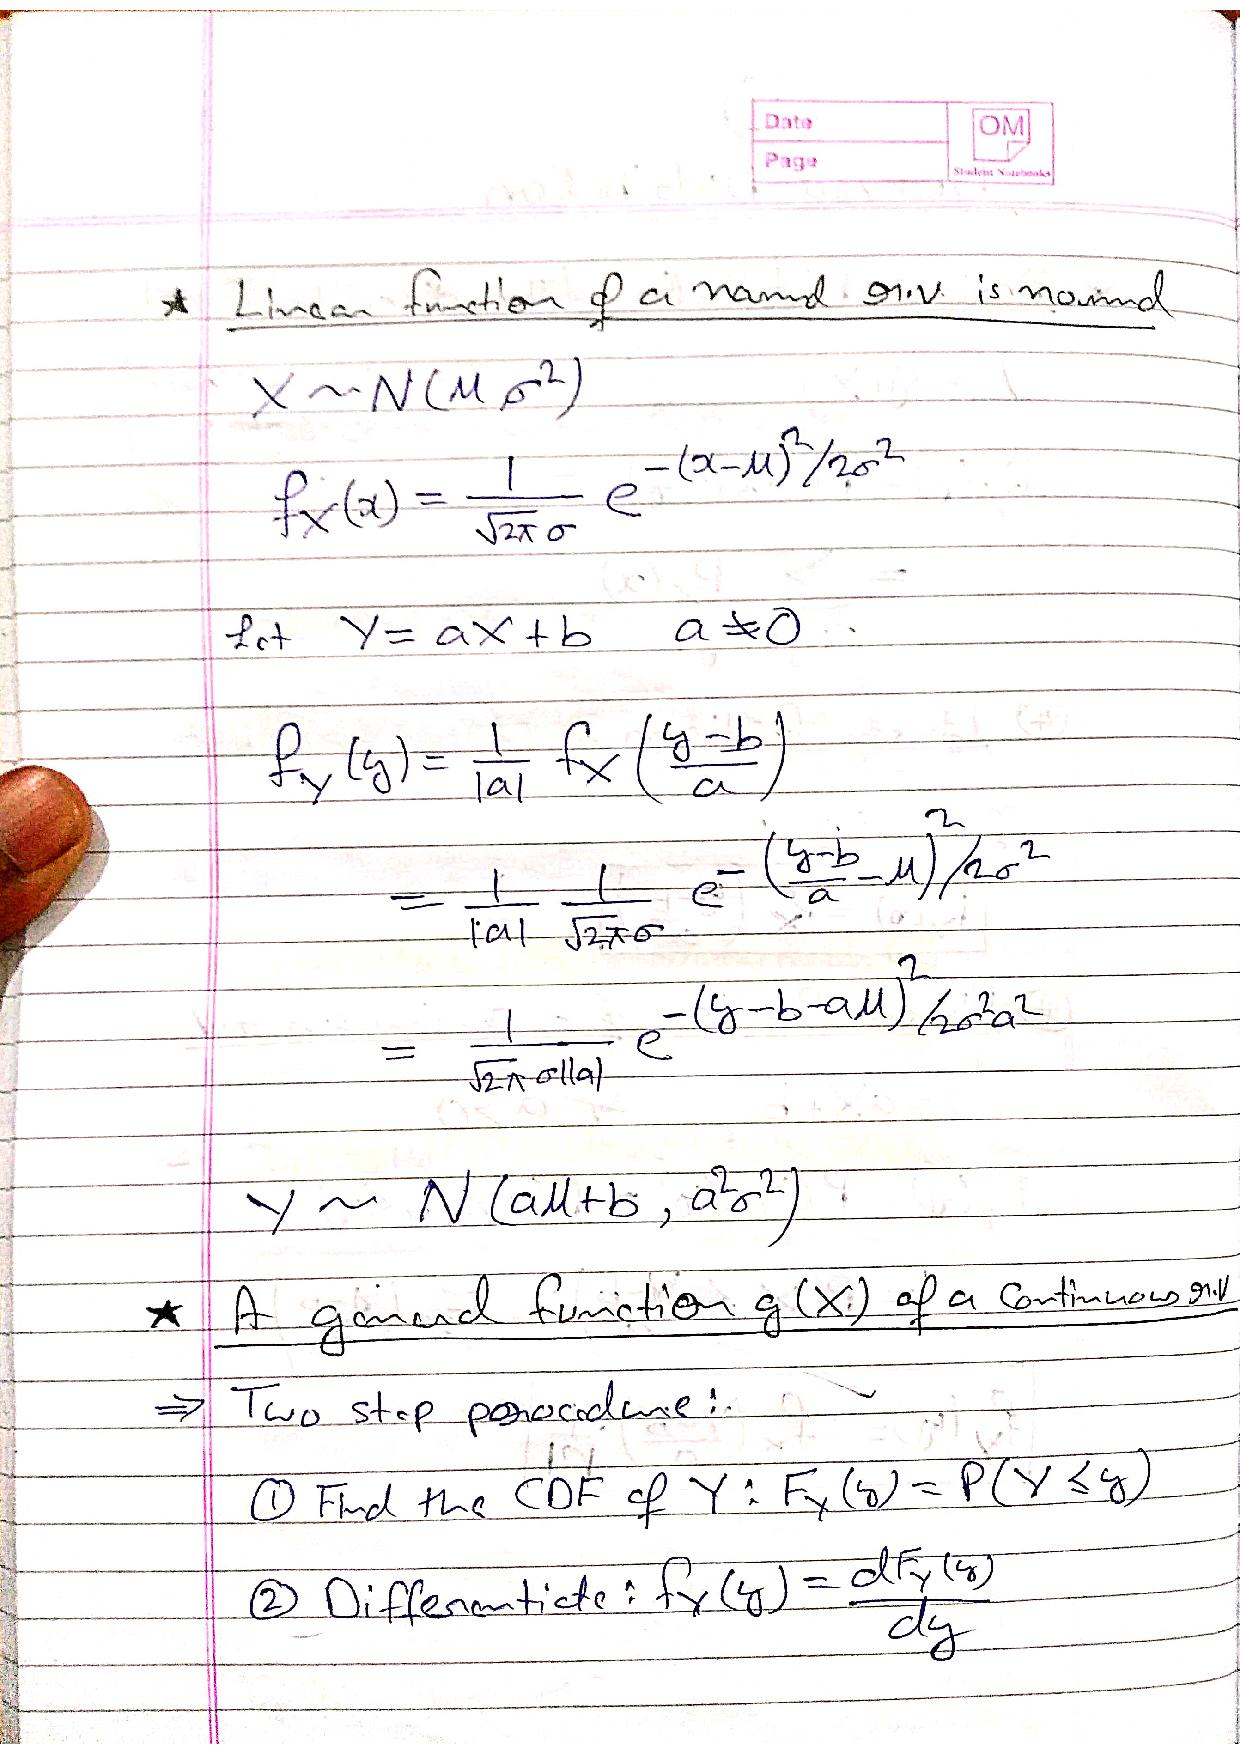 Date
Page
OM
Student Notebooks
★ Linear function of a normal r.v. is normal
X ~ N(μ σ²)
f_X(x) = 1/(√2π σ) e^(-(x-μ)²/2σ²)
Let Y = aX + b a ≠ 0
f_Y(y) = 1/|a| f_X((y-b)/a)
= 1/|a| 1/(√2π σ) e^(-((y-b)/a - μ)²/2σ²)
= 1/(√2π σ||a|) e^(-(y-b-aμ)²/2σ²a²)
Y ~ N(aμ+b, a²σ²)
★ A general function g(X) of a Continuous r.v
⇒ Two step procedure:
① Find the CDF of Y: F_Y(y) = P(Y ≤ y)
② Differentiate: f_Y(y) = dF_Y(y)/dy